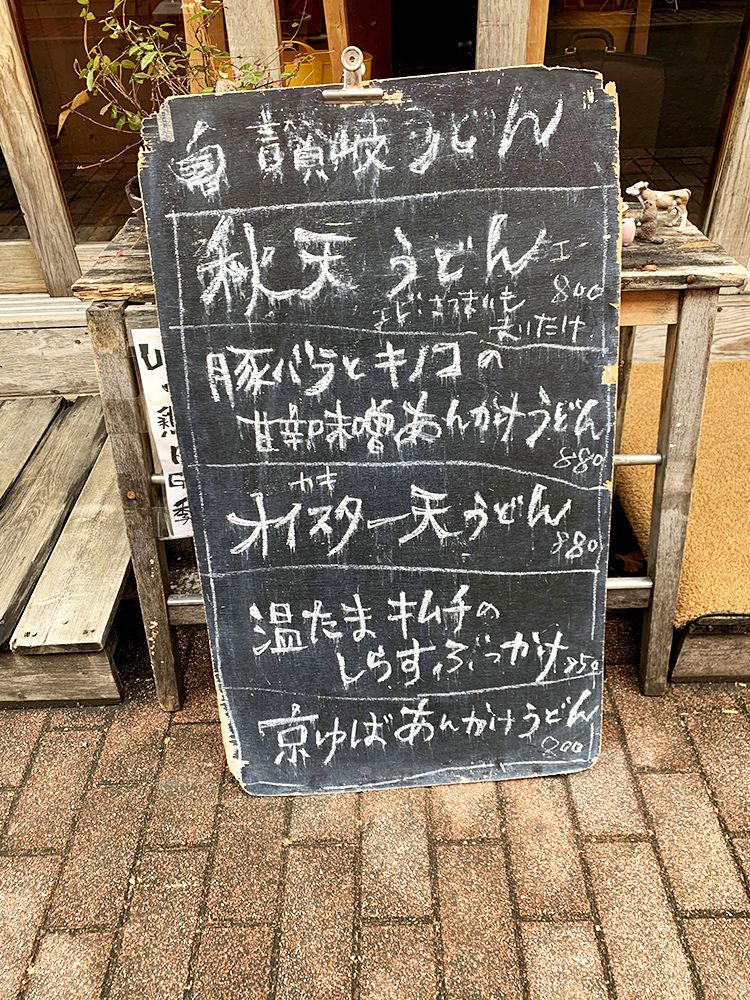 讃岐うどん
秋天うどん
エビ さつまいも まいたけ
800
豚バラとキノコの
甘辛味噌あんかけうどん
880
カキ
オイスター天うどん
880
温たまキムチの
しらすぶっかけ 850
京ゆばあんかけうどん
900